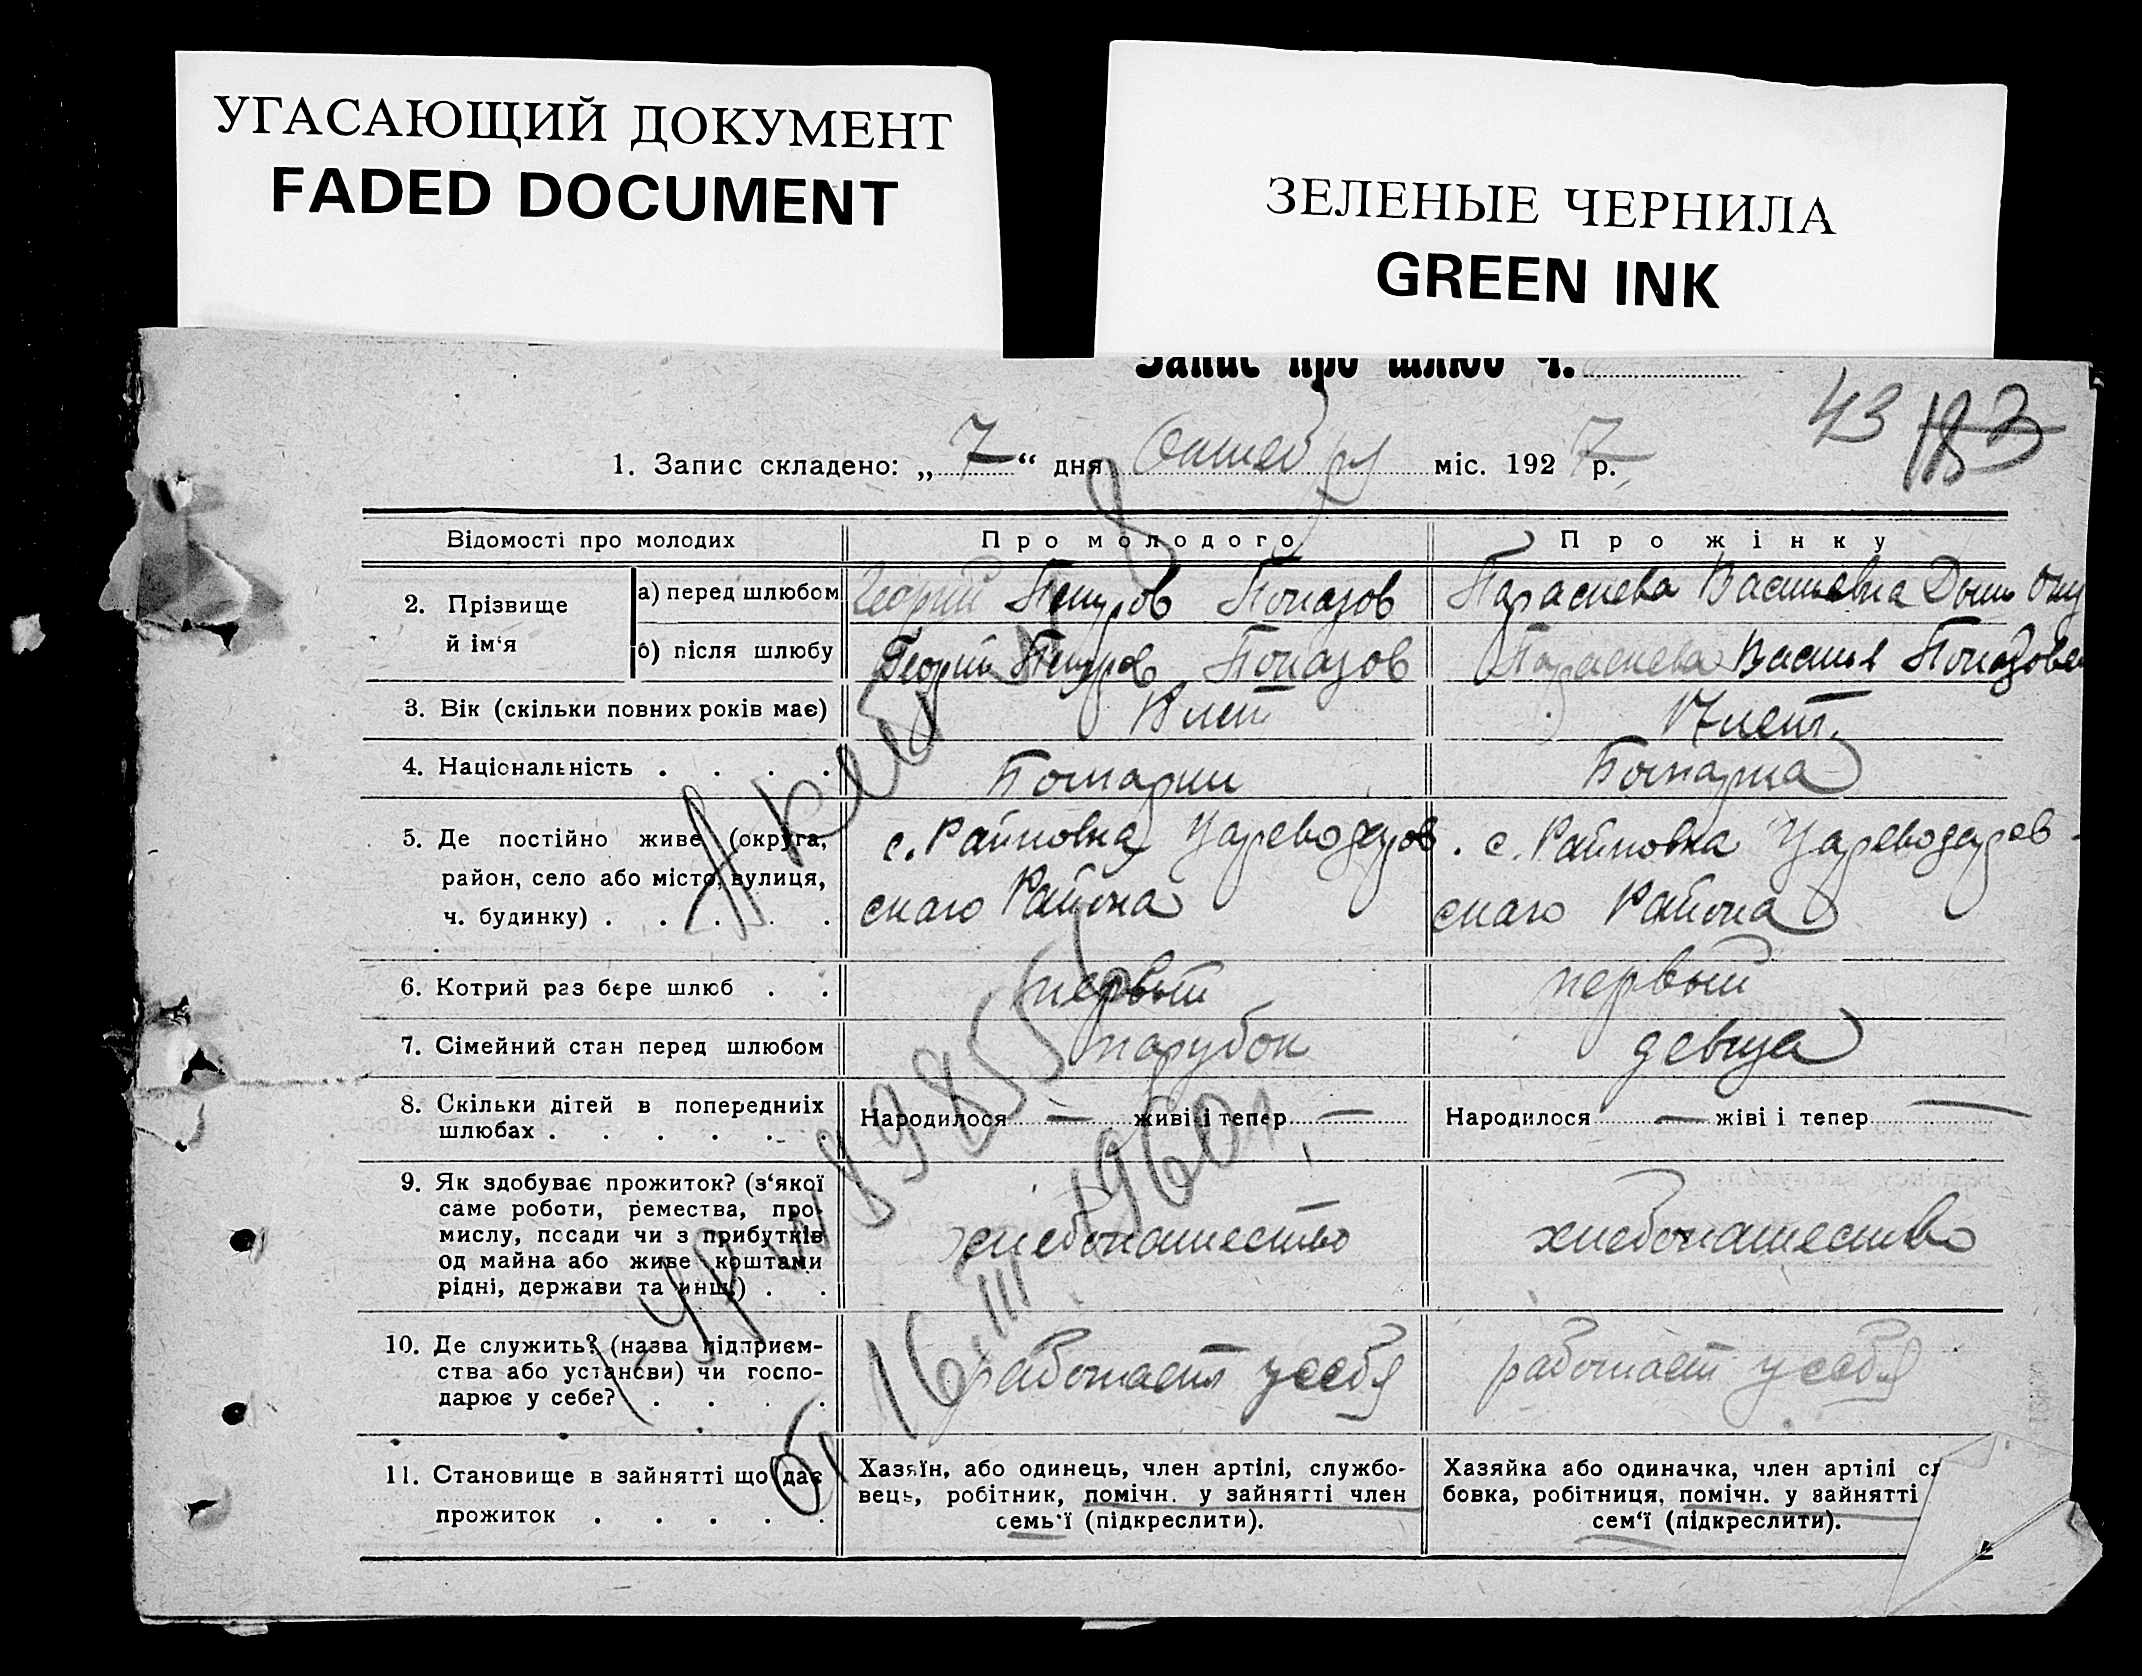 УГАСАЮЩИЙ ДОКУМЕНТ
FADED DOCUMENT
ЗЕЛЕНЫЕ ЧЕРНИЛА
GREEN INK
Запис про шлюб ч.
43 183
1. Запис складено: „ 7 “ дня Октября міс. 1927 р.
Відомості про молодих
Про молодого
Про жінку
2. Прізвище й ім‘я
а) перед шлюбом
Георгий Петров
Параскева Васильевна
б) після шлюбу
Георгий Петров
Параскева Василь
3. Вік (скільки повних років має)
18 лет
17 лет.
4. Національність . . . .
Болгарин
Болгарка
5. Де постійно живе (округа,
район, село або місто, вулиця,
ч. будинку) . . . .
с. Райновка Цареводаров
скаго Района
с. Райновка Цареводаров-
скаго Района
6. Котрий раз бере шлюб . .
первый
первый
7. Сімейний стан перед шлюбом
парубок
девица
8. Скільки дітей в попередниіх
шлюбах . . . . . .
Народилося — живі і тепер —
Народилося — жіві і тепер —
9. Як здобуває прожиток? (з‘якої
саме роботи, ремества, про-
мислу, посади чи з прибутків
од майна або живе коштами
рідні, держави та инш.) . .
хлебопашество
хлебопашество
10. Де служить? (назва підприєм-
ства або установи) чи госпо-
дарює у себе? . . . .
работает у себя
работает у себя
11. Становище в зайнятті що дає
прожиток . . . . .
Хазяїн, або одинець, член артілі, службо-
вець, робітник, помічн. у зайнятті член
семь‘ї (підкреслити).
Хазяйка або одиначка, член артілі
бовка, робітниця, помічн. у зайнятті
сем‘ї (підкреслити).
16.III 1960г.